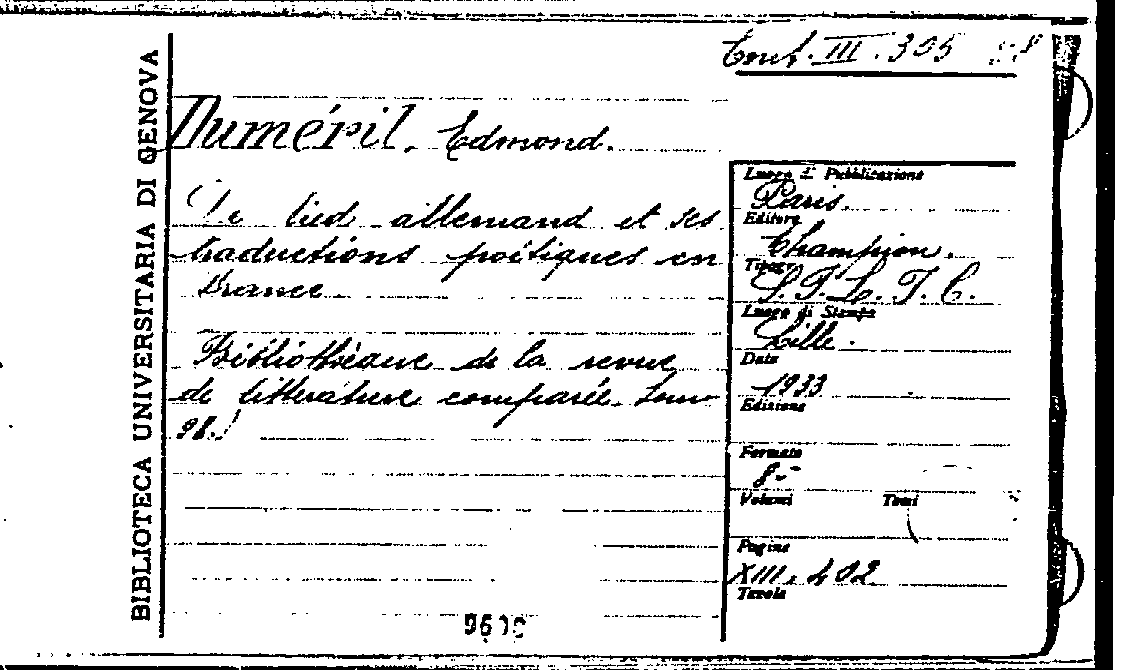 BIBLIOTECA UNIVERSITARIA DI GENOVA
Conf. III. 305
Duméril, Edmond.
Le lied allemand et ses
traductions poëtiques en
France
Bibliothèque de la revue
de littérature comparée. Tome
98.)
Luogo di Pubblicazione
Paris.
Editore
Champion.
Tipogr.
S.I.L.I.C.
Luogo di Stampa
Lille.
Data
1933
Edizione
Formato
8º
Volumi Tomi
Pagine
XIII, 402
Tavole